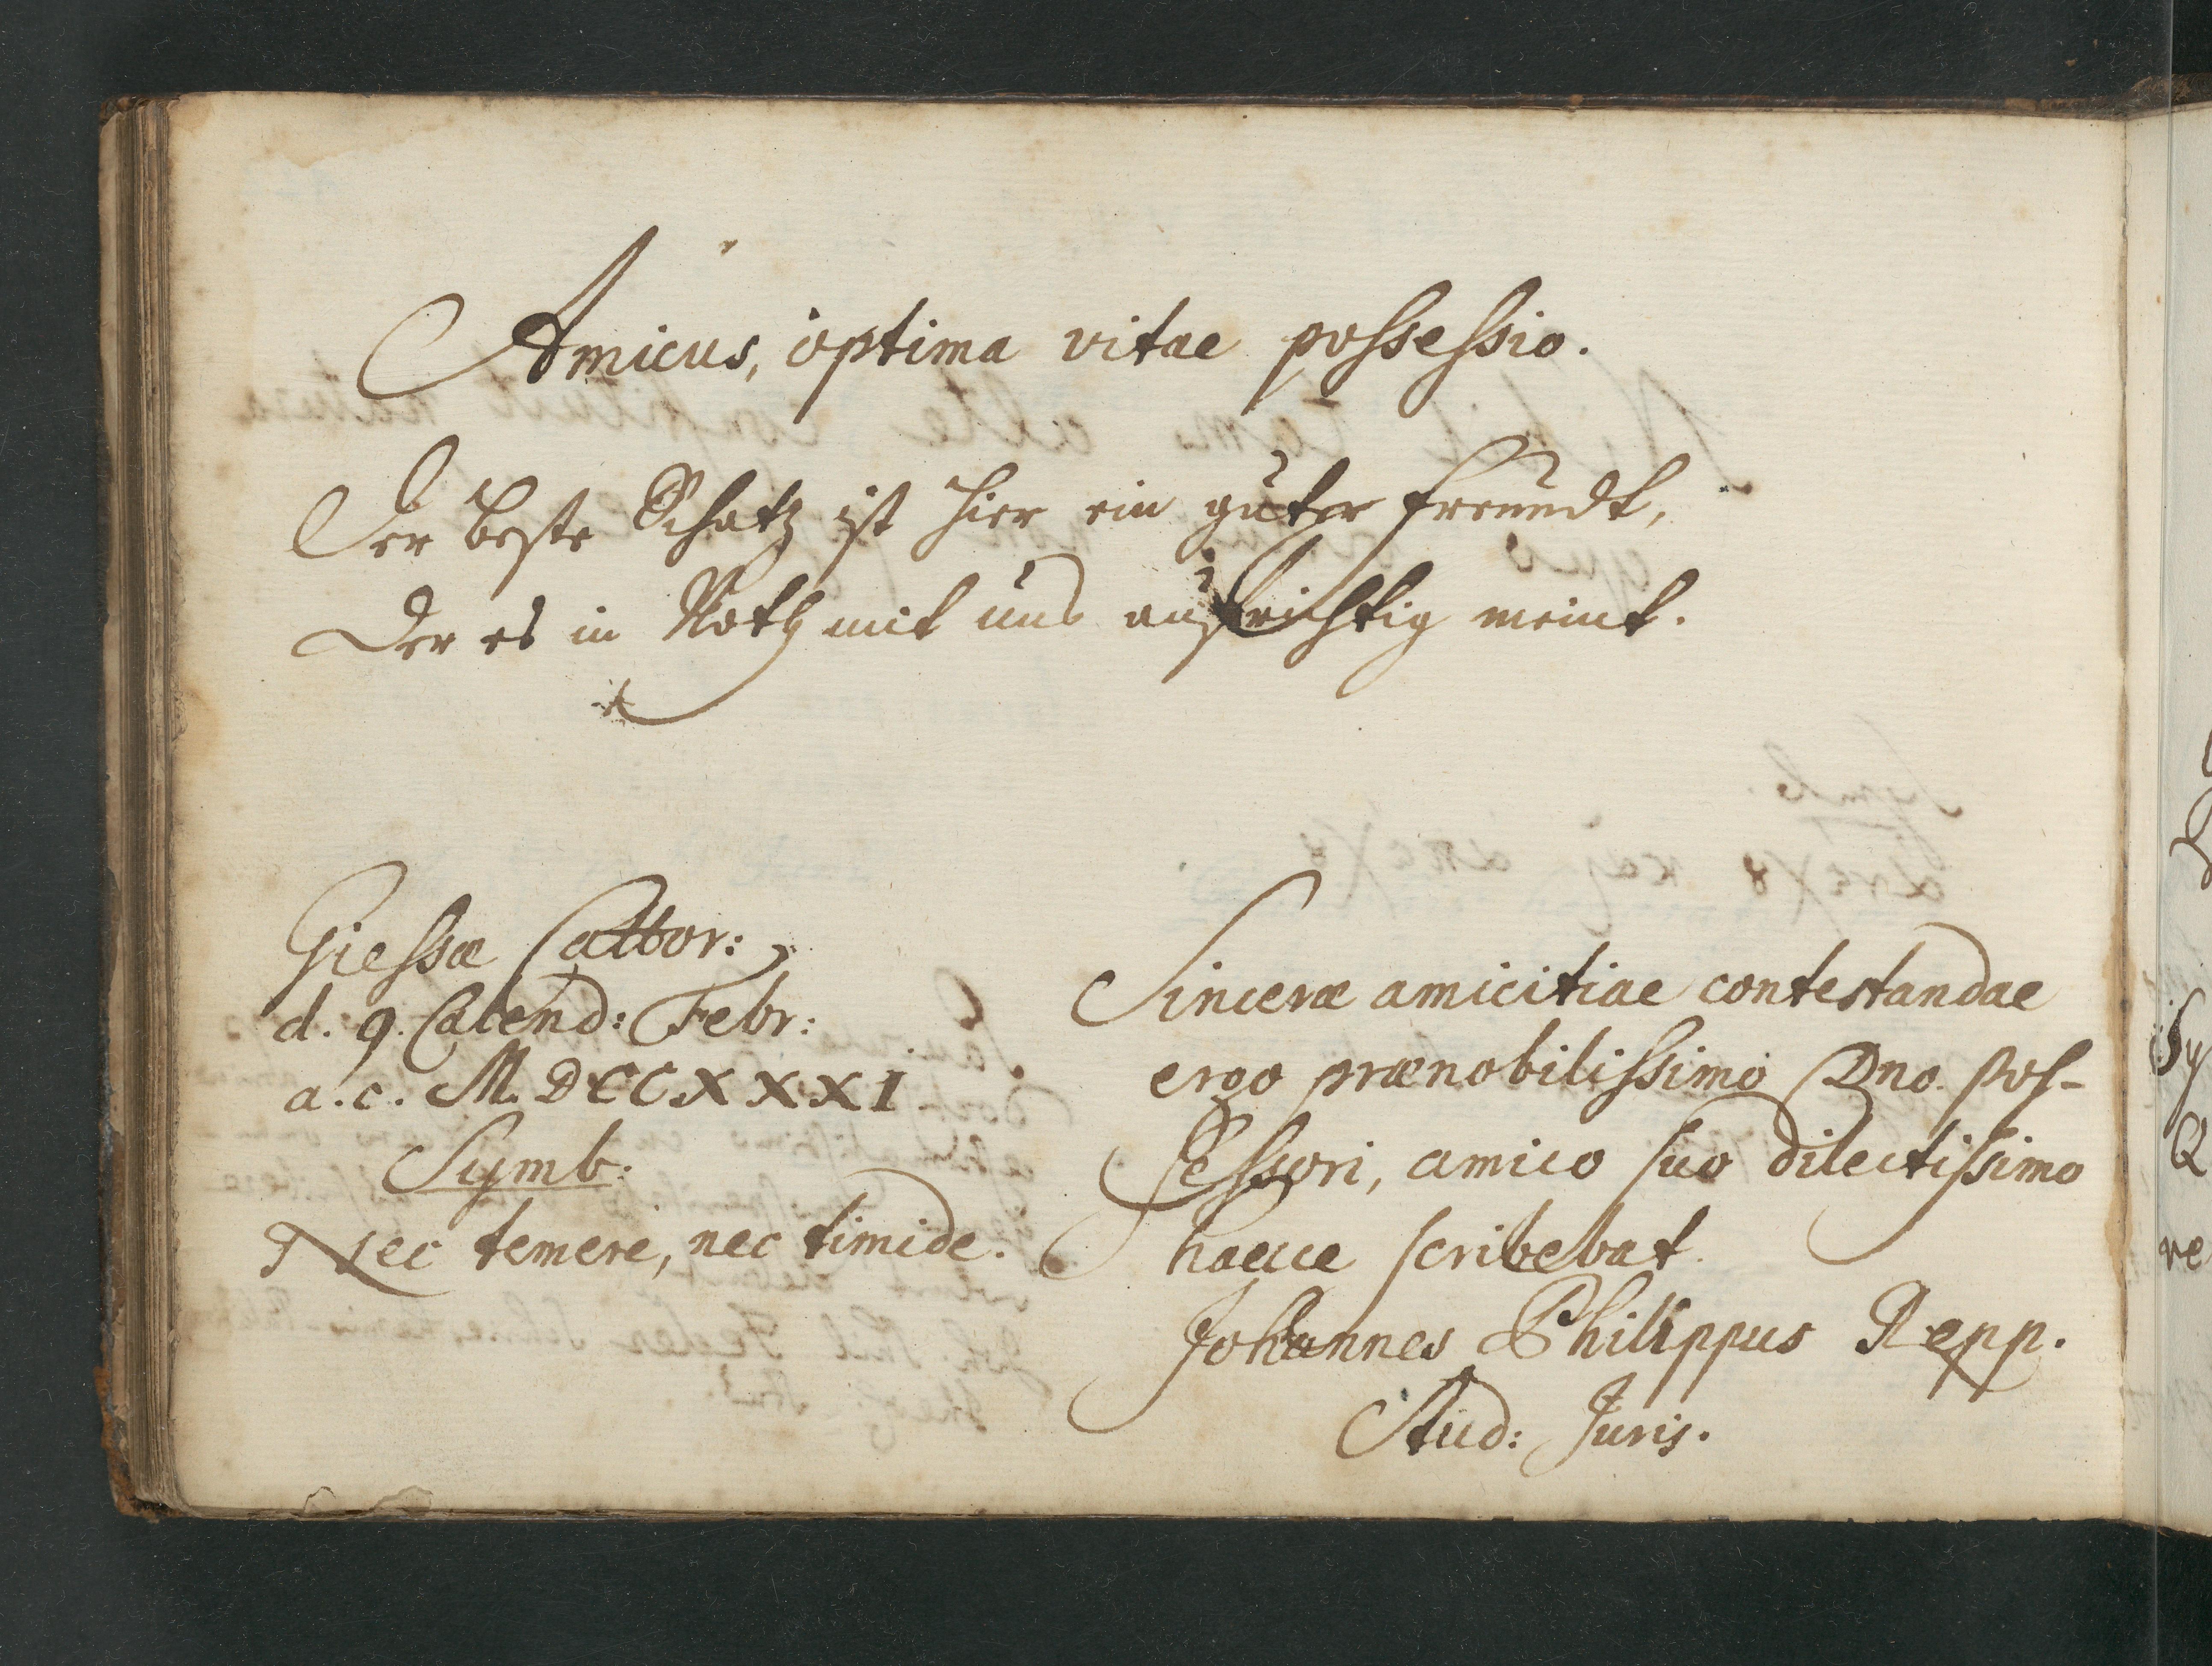 Amicus, optima vitae possessio.
Der beste Schatz ist hier ein guter freundt,
Der es in Noth mit uns aufrichtig meint.
Giessæ Cattor:
d. 9. Calend: Febr:
a. c. M. DCCXXXI
Symb:
Nec temere, nec timide.
Sinceræ amicitiae contestandae
ergo prænobilissimo Dno. Pos-
sessori, amico suo dilectissimo
haecce scribebat
Johannes Philippus Repp.
Stud: Juris.